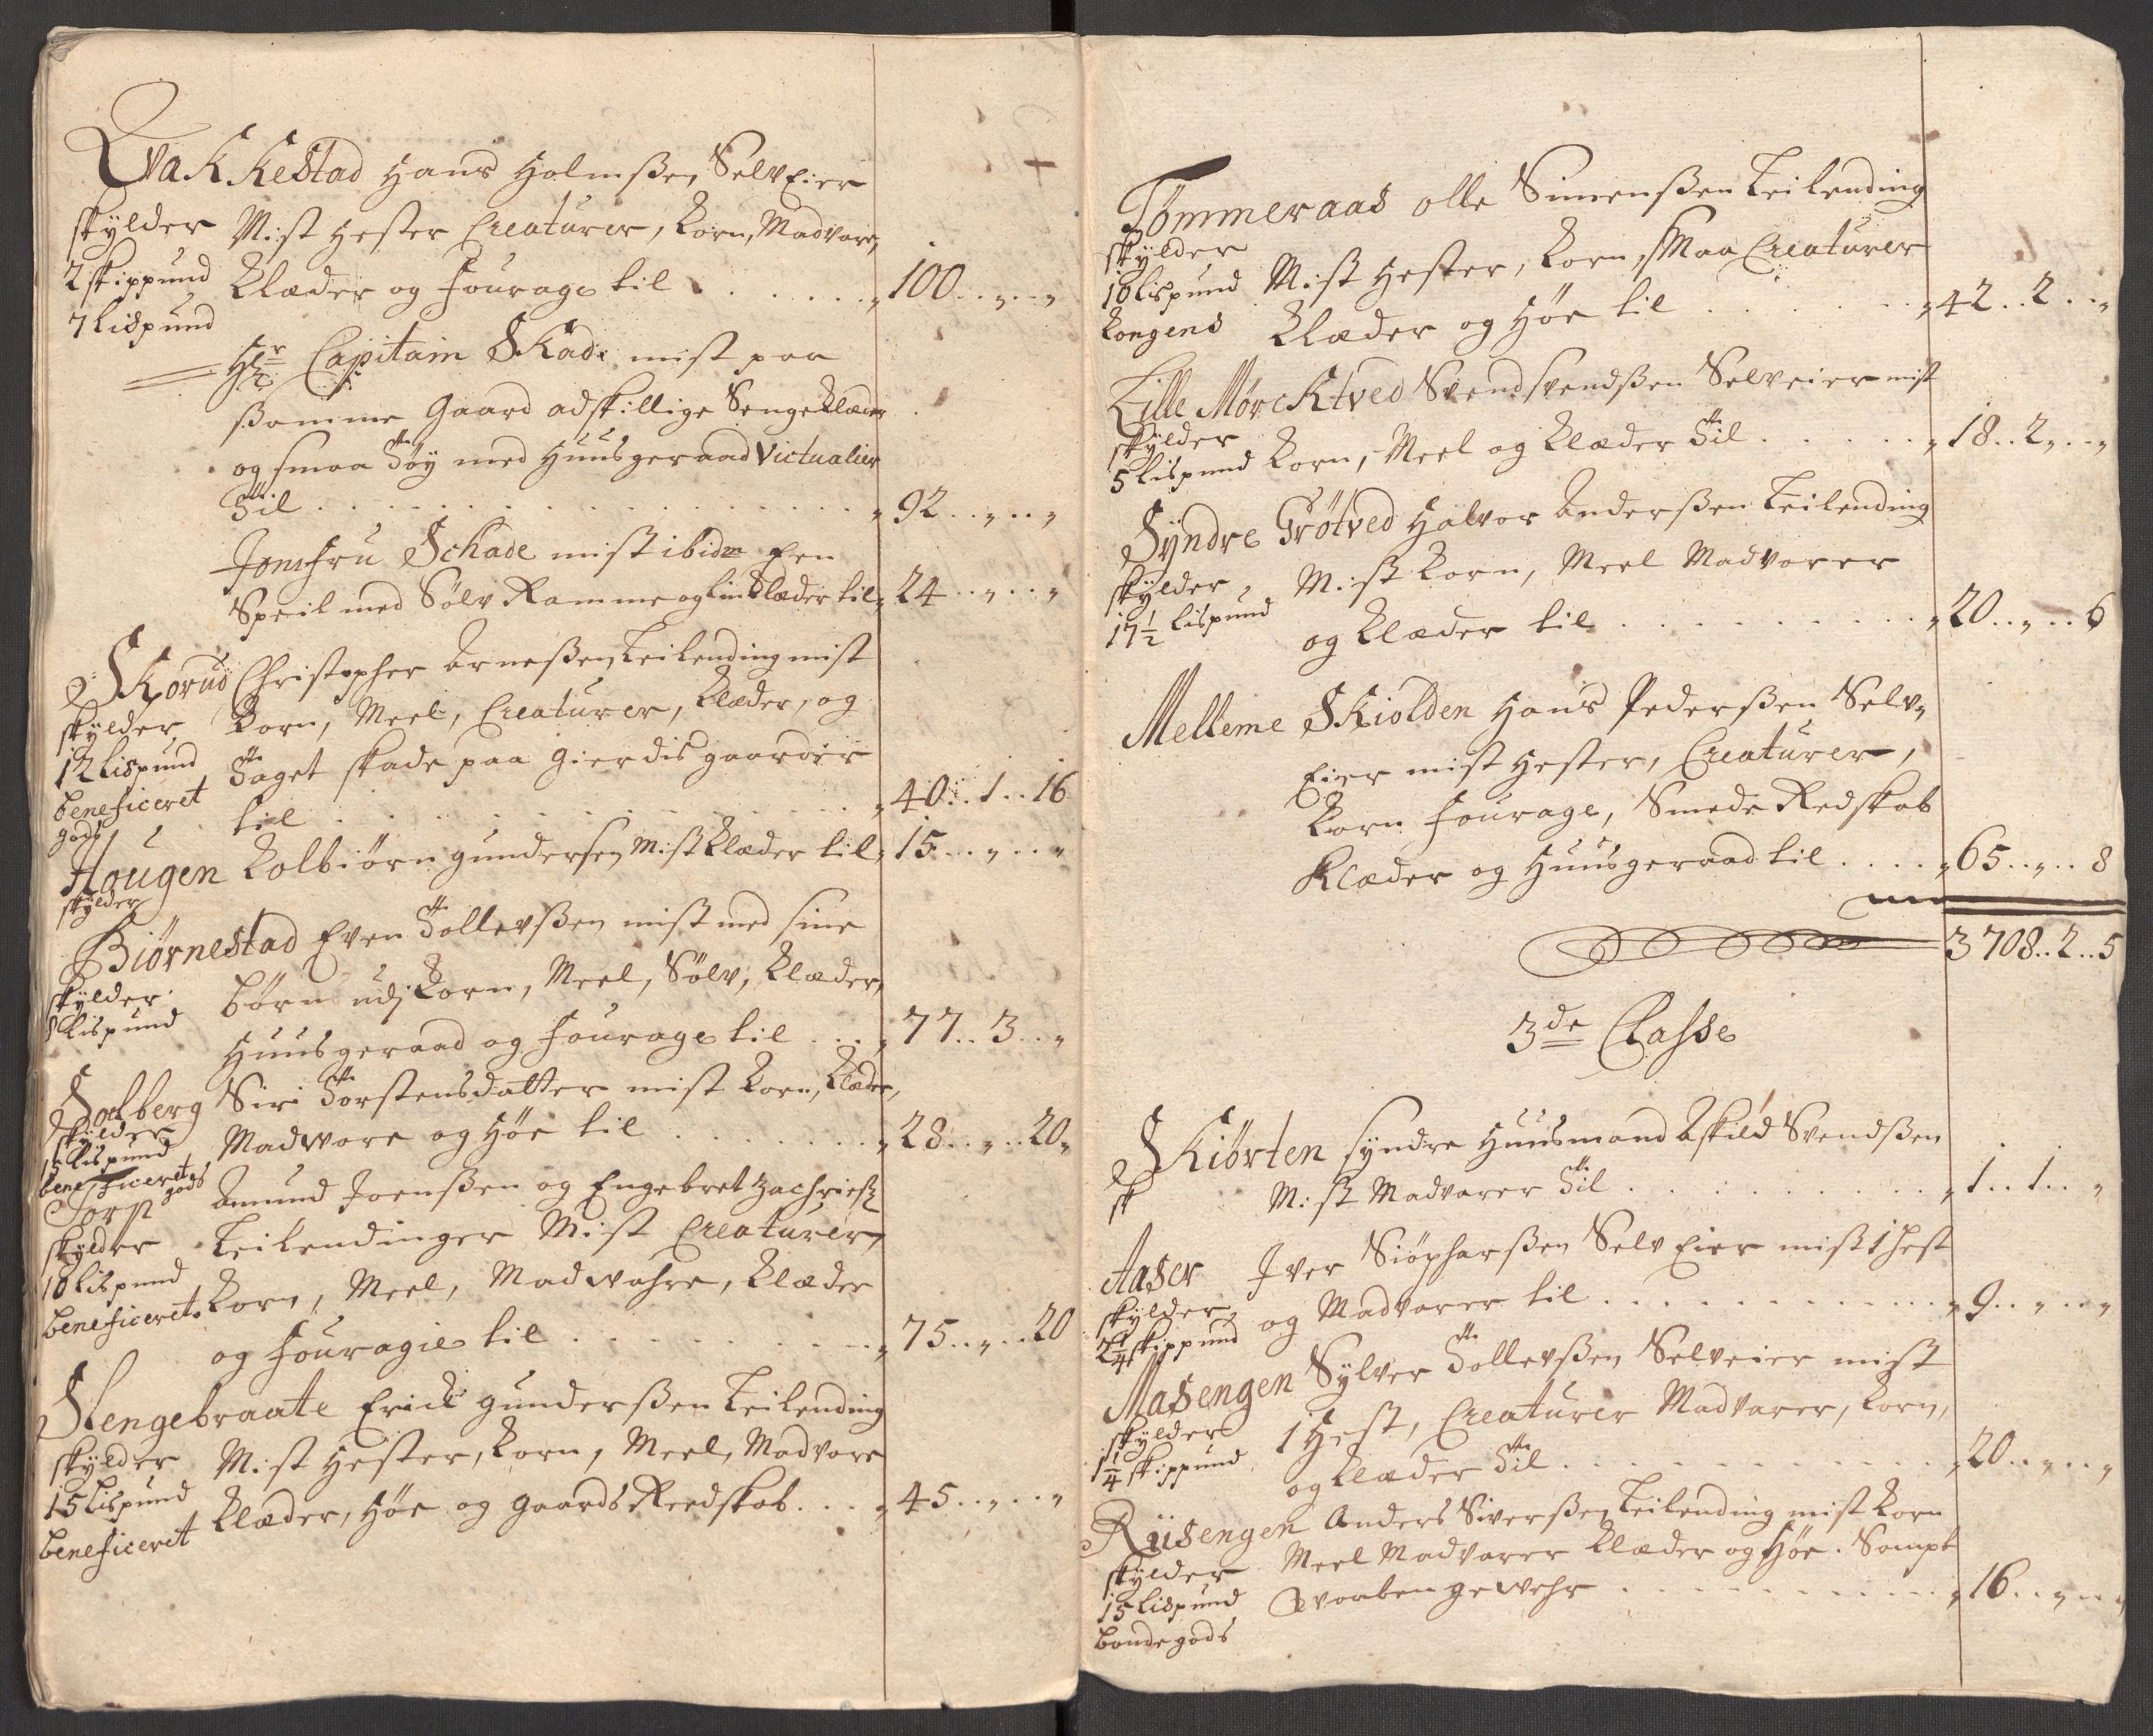 QvaKKestad Hans Holmssen SelvEier
skÿlder Mist Hester Creaturer, Korn, Madvare,
2 skippund Klæder og Fourage til . . . . . . „ 100 „ „
7 Lispund
Hr Capitain SKade mist paa
ssamme Gaard adskillige Sengeklæder
og smaa Tøÿ med Huusgeraad Victualier
Til . . . . . . . . . . . „ 92 „ „
Jomfru Schade mist ibidm Een
Speil med Sølv Ramme og Linklæder til „ 24 „ „
SKorud Christopher Arnessen Leilending mist
skÿlder Korn, Meel, Creaturer, Klæder, og
12 Lispund Taget skade paa gierdisgaarder
beneficeret til . . . . . . . . „ 40 .. 1 .. 16
gods
Hougen Kolbiørn gundersen Mist Klæder til „ 15 „ „
skÿlder
Biørnestad Even Tollevssen mist med sine
skÿlder børn udj Korn, Meel, Sølv, Klæder,
8 Lispund Huusgeraad og Fourage til . . . „ 77 .. 3 .. „
Solberg Siri Torstensdatter mist Korn, Klæder,
skÿlder Madvare og Høe til . . . . . . „ 28 .. „ .. 20 „
15 Lispund
beneficeret gods
Torp Amund Joenssen og Engebret Zachriess
skÿlder Leilendinger Mist Creaturer,
10 Lispund Korn, Meel, Madwahre, Klæder
beneficeret og Fouragie til . . . . . . . „ 75 .. „ .. 20
Slengebraate Erick gunderssen Leilending
skÿlder Mist Hester, Korn, Meel, Madvare
15 Lispund Klæder, Høe og gaards Reedskab . . . „ 45 „ „
beneficeret
Tømmeraas olle Simenssen Leilending
skÿlder
10 Lispund Mist Hester, Korn, SMaa Creaturer
Kongens Klæder og Høe til . . . . . . „ 42 .. 2 .. „
Lille MørcKtved Svend svendssen Selveier mist
skÿlder
5 Lispund Korn, Meel og Klæder Til . . . . . „ 18 .. 2 .. „
Sÿndre Grøtved Halvor Anderssen Leilending
skÿlder Mist Korn, Meel Madvarer
17½ Lispund og Klæder til . . . . . . . . „ 20 .. „ .. 6
Melleme SKiolden Hans Pederssen Selv„
Eier mist Hester, Creaturer,
Korn Fourage, Smede Redskab
Klæder og Huusgeraad til . . . . „ 65 .. „ .. 8
3708 .. 2 .. 5
3de Classe
SKiørten sÿndre Huusmand Askild Svendssen
sk Mist Madvarer Til . . . . . . . . „ 1 .. 1 .. „
Aaser Iver Siøpharssen Selv Eier mist 1 Hest
skÿlder og Madvarer til . . . . . . . . „ 9 .. „ .. „
2¼ skippund
Masengen Sÿlver Tollevssen Selveier mist
skÿlder 1 Hest, Creaturer Madvarer, Korn,
1¼ skippund og Klæder Til . . . . . . . . „ 20 .. „ .. „
Riisengen Anders Siverssen Leilending mist Korn
skÿlder Meel Madvarer Klæder og Høe. Sampt
15 Lispund Svorben gewehr . . . . . . . . „ 16 .. „ .. „
bondegods